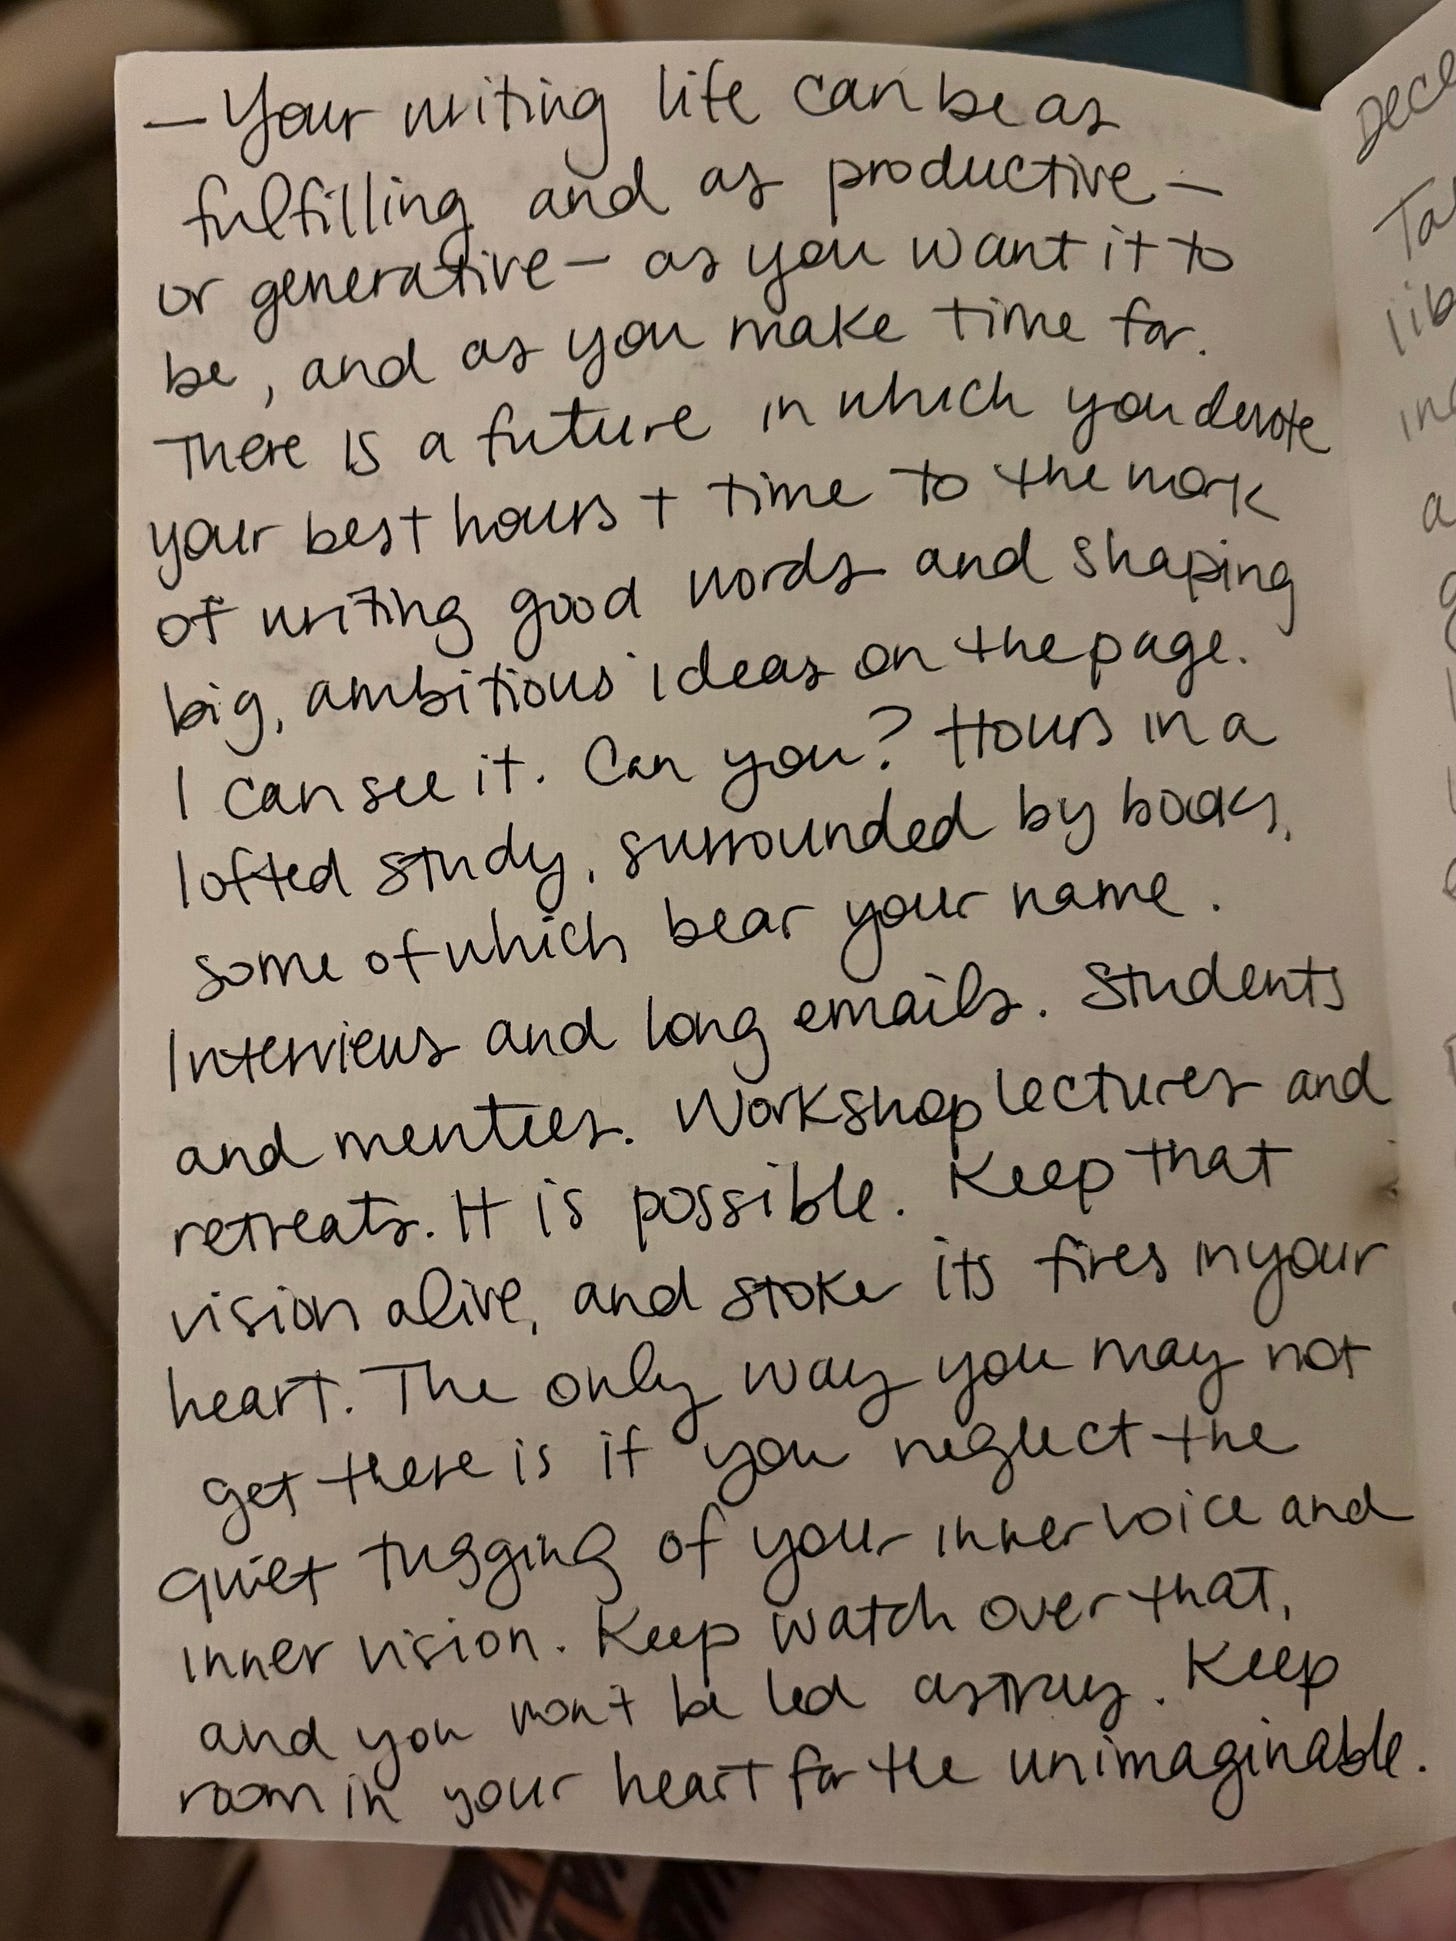 — Your writing life can be as
fulfilling and as productive —
or generative — as you want it to
be, and as you make time for.
There is a future in which you devote
your best hours + time to the work
of writing good words and shaping
big, ambitious ideas on the page.
I can see it. Can you? Hours in a
lofted study, surrounded by books,
some of which bear your name.
Interviews and long emails. Students
and mentees. Workshop lectures and
retreats. It is possible. Keep that
vision alive, and stoke its fires in your
heart. The only way you may not
get there is if you neglect the
quiet tugging of your inner voice and
inner vision. Keep watch over that,
and you won't be led astray. Keep
room in your heart for the unimaginable.